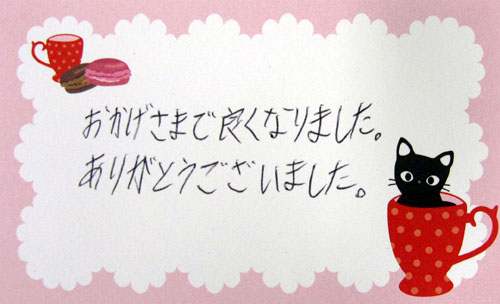 おかげさまで良くなりました。
ありがとうございました。